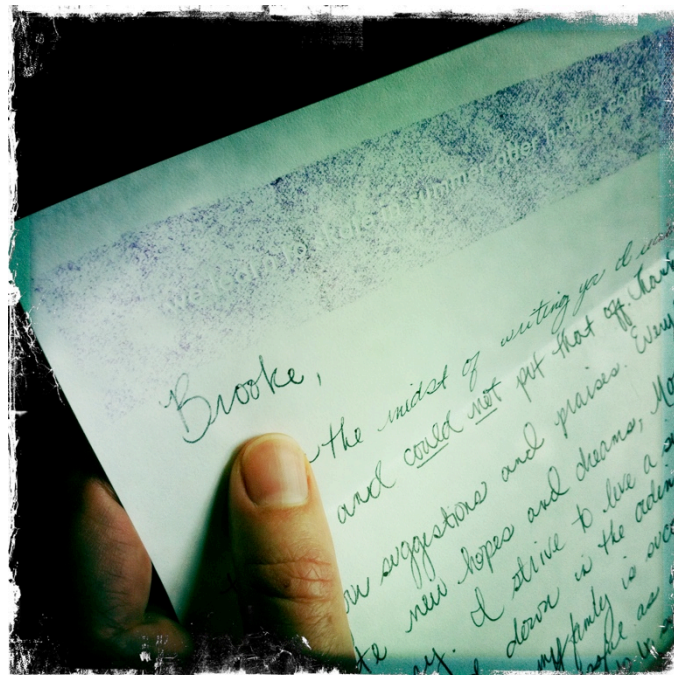 we begin to shine in summer after having
Brooke,
the midst of writing you I
and could not put that off.
suggestions and praises. Every
new hopes and dreams,
I strive to live a
down in the
my family is
as